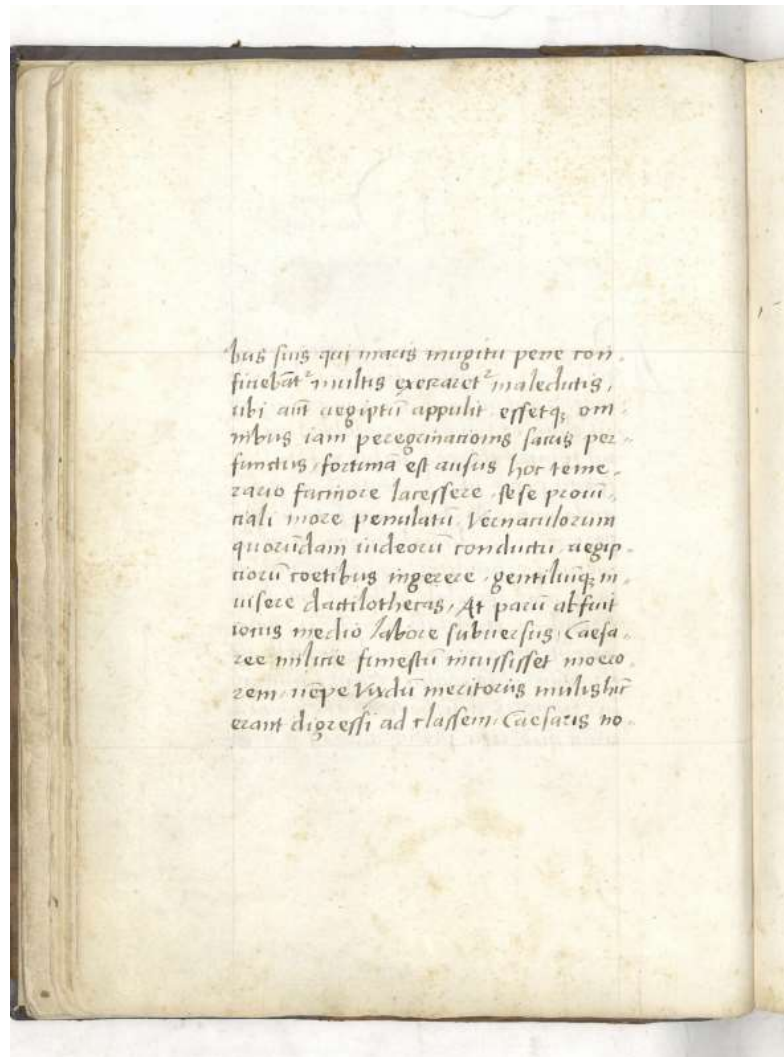 bus suis qui maris mugitu pene con-
ficiebāt² multis execraret² maledictis,
ubi aūt aegiptū appulit essetq; om-
nibus iam peregrinationis sacris per-
functus, fortunā est ausus hoc teme-
rario facinore lacessere, sese provi-
ciali more penulatū Vernaculorum
quorūdam iudeorū conductu, aegip-
tiorū coetibus ingerere, gentiliūq; in-
visere dactilothecas, At parū abfuit
medio labore subversus, Caesa-
ree milicie funestū incussisset moero-
rem, nēpe Vixdū meritoriis mulis hīc
erant digressi ad classem, Caesaris no-